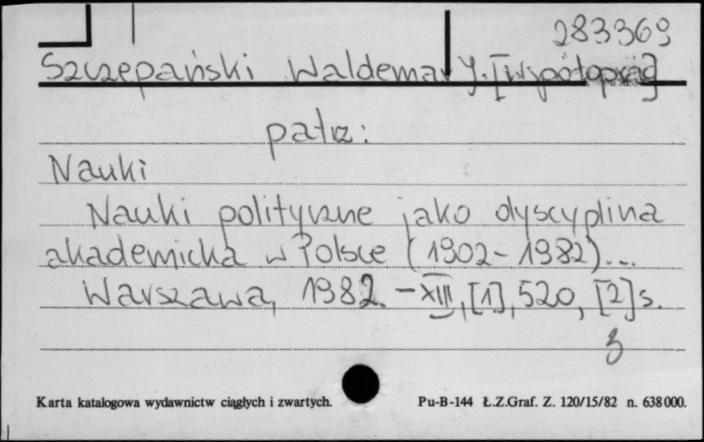 283369
Szczepański Waldemar J. [Współoprac]
patrz:
Nauki
Nauki polityczne jako dyscyplina
akademicka w Polsce (1902-1982)...
Warszawa, 1982. - XIII, [1], 520, [2] s.
3
Karta katalogowa wydawnictw ciągłych i zwartych. Pu-B-144 Ł.Z.Graf. Z. 120/15/82 n. 638000.